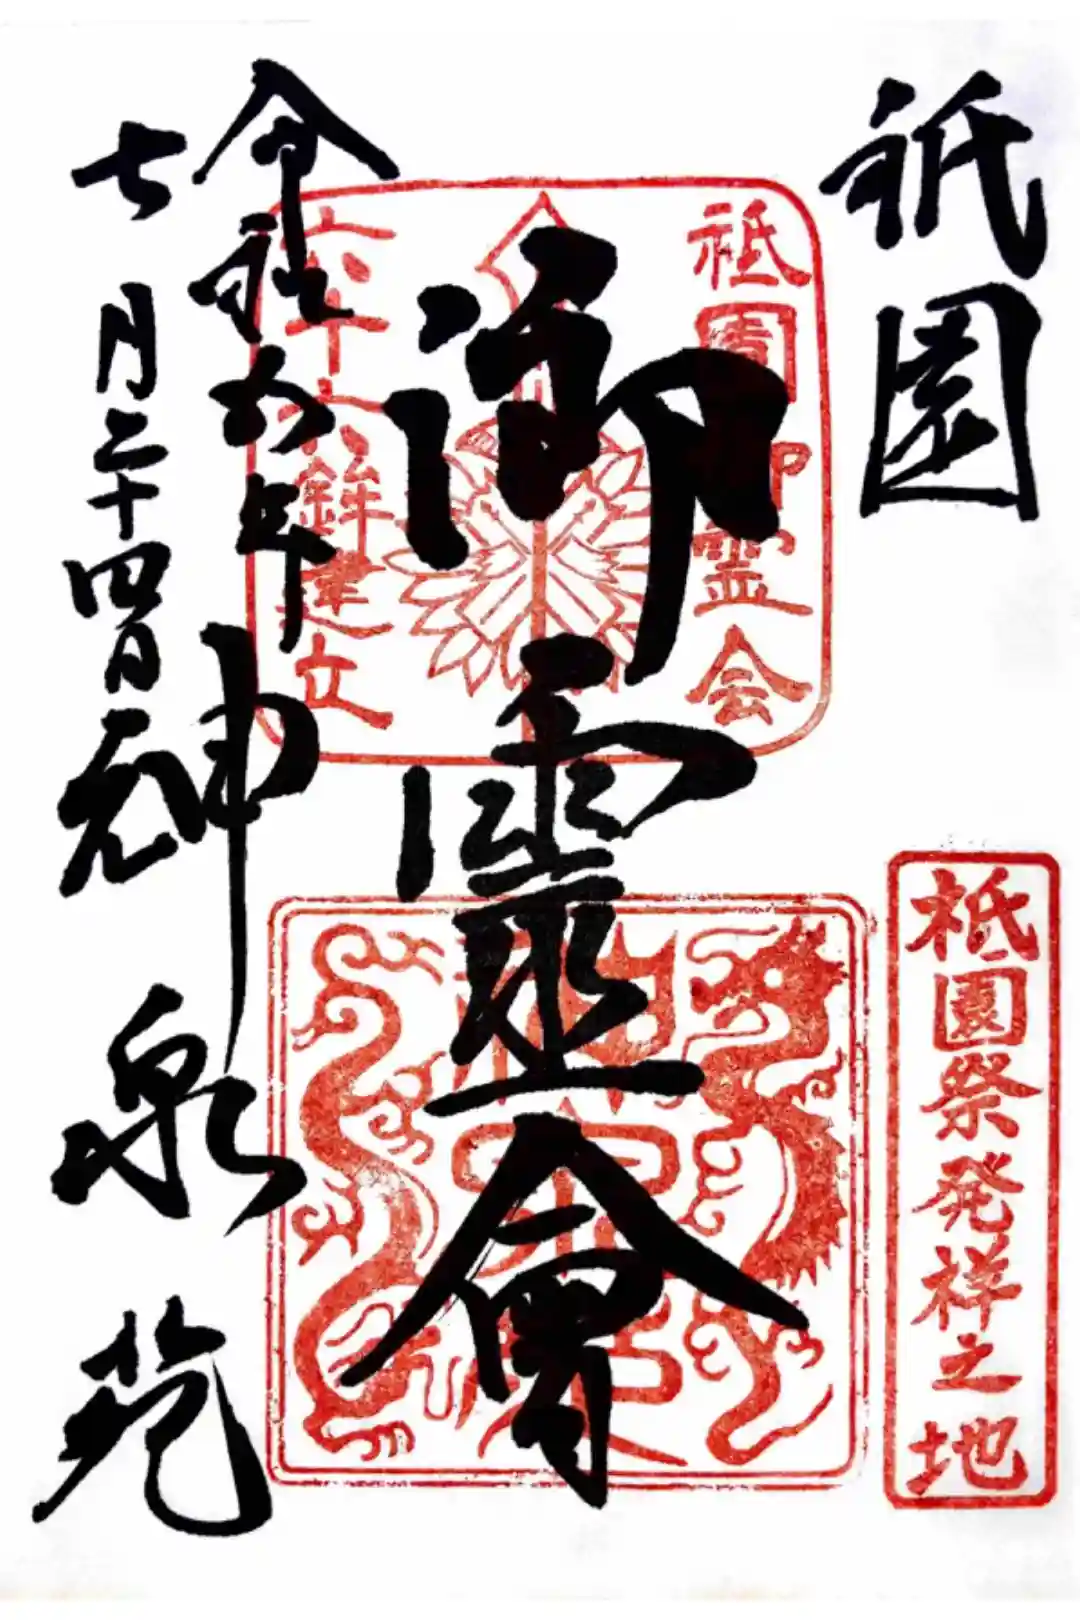 祇園
祇園御霊会
六十六鉾建立
御靈會
祇園祭発祥之地
神泉苑
令和五年
七月二十四日
神泉苑